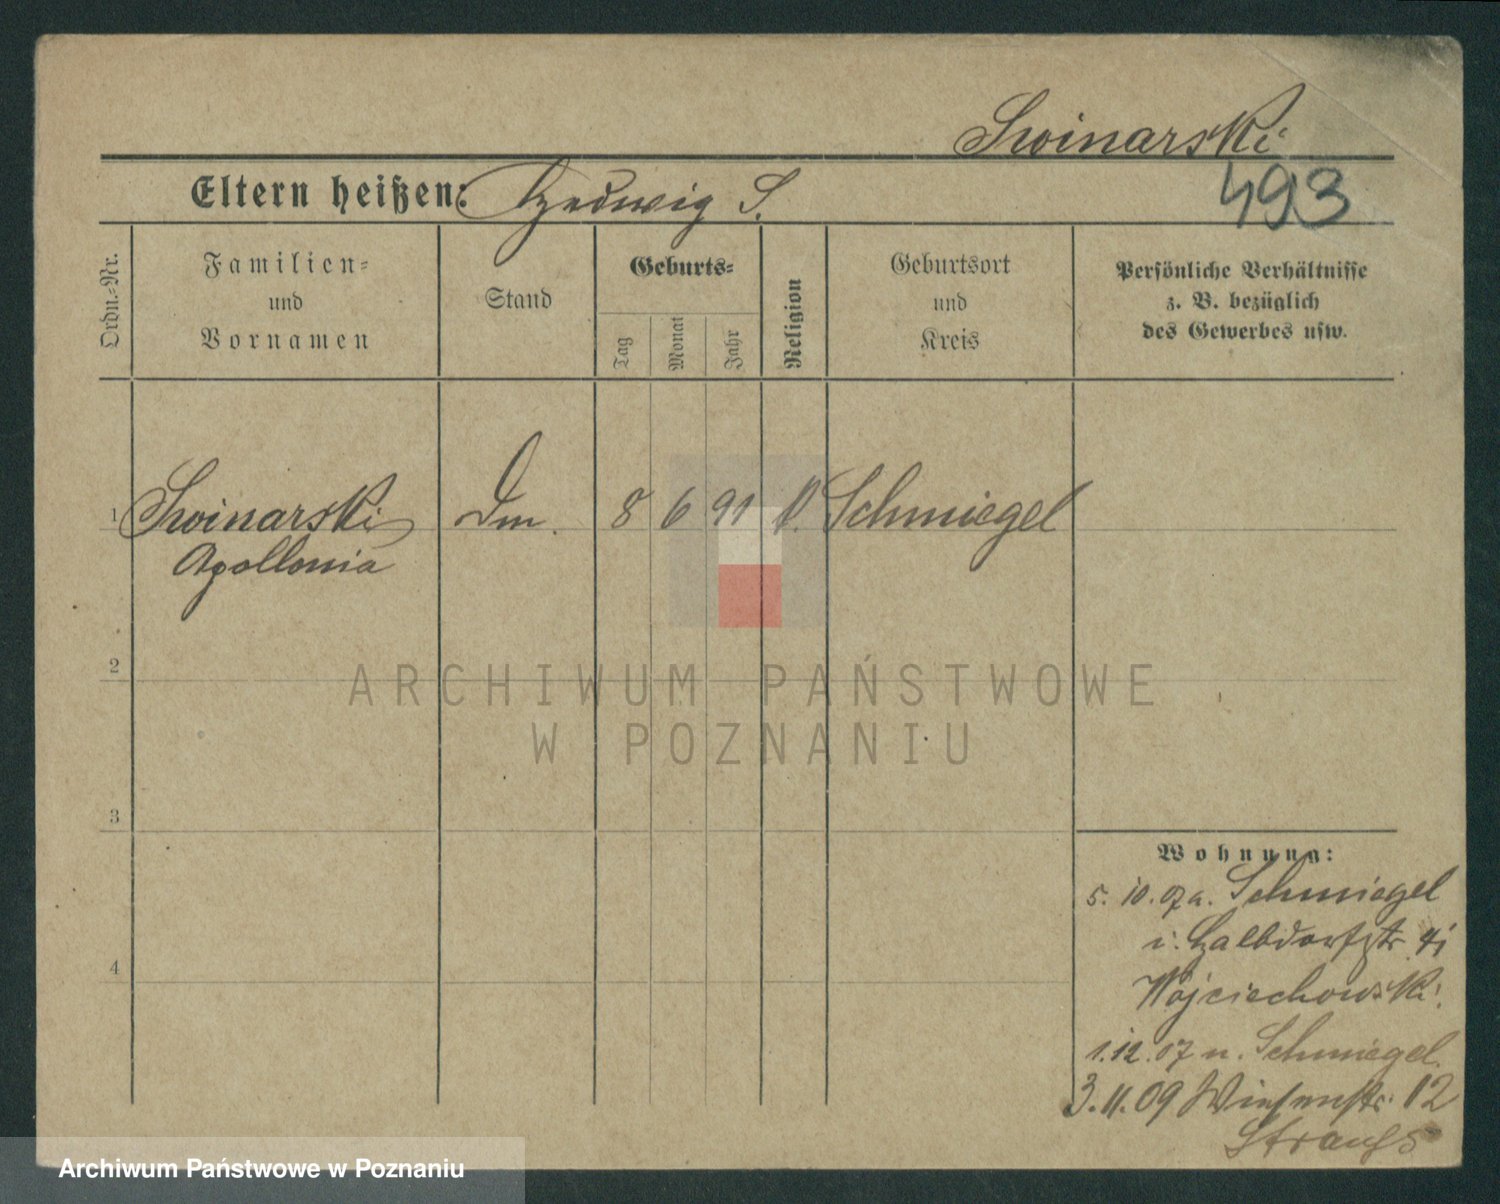 Swinarski
Eltern heißen: Hedwig S.
493
Ordn.-Nr.
Familien-
und
Vornamen
Stand
Geburts-
Tag
Monat
Jahr
Religion
Geburtsort
und
Kreis
Persönliche Verhältnisse
z. B. bezüglich
des Gewerbes usw.
1 Swinarski Dm. 8 6 91 Schmiegel
Apollonia
2
ARCHIWUM PAŃSTWOWE
W POZNANIU
3
Wohnung:
5. 10. 07 a. Schmiegel
i. Halbdorfstr
Wojciechowski.
4
1. 12. 07 n. Schmiegel.
3. 11. 09 Wiesenstr. 12
Strauss
Archiwum Państwowe w Poznaniu